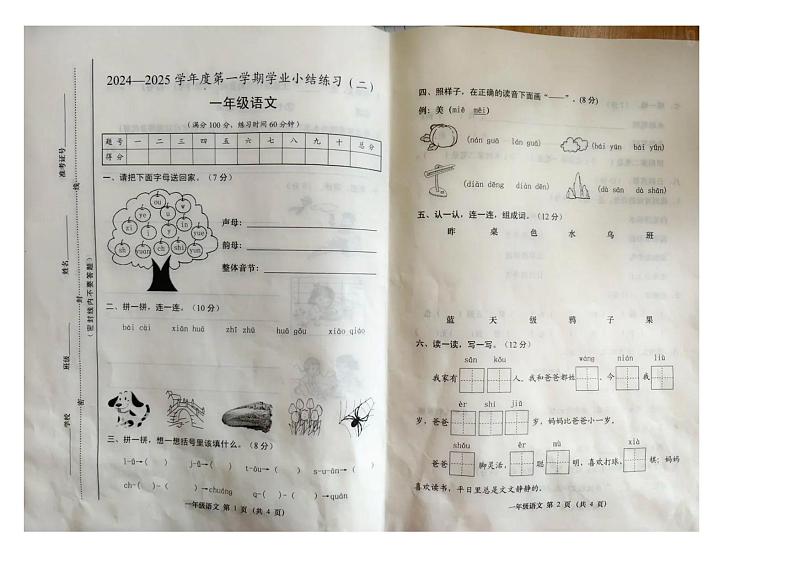 2024—2025 学年度第一学期学业小结练习（二）
一年级语文
（满分 100 分，练习时间 60 分钟）
题号 一 二 三 四 五 六 七 八 九 十 总分
得分
一、请把下面字母送回家。（7 分）
ou w
ye u in
zi i y yue
sh yuan ch shi yun
声母：
韵母：
整体音节：
二、拼一拼，连一连。（10 分）
bái cài xiān huā zhī zhū huā gǒu xiǎo qiáo
三、拼一拼，想一想括号里该填什么。（8 分）
l-ü→( ) j-ü→( ) t-óu→( ) s-u-ān→( )
ch-( )-( )→chuáng q-( )-( )→quán
一年级语文 第 1 页（共 4 页）
学校
班级
姓名
准考证号
（密封线内不要答题）
密 封 线
四、照样子，在正确的读音下面画“——”。(8 分)
例：美（miě měi）
（nán guā lán guā） （bái yún bái yǘn）
（diàn dēng diàn dēn） （dà sān dà shān）
五、认一认，连一连，组成词。（12 分）
昨 桌 色 水 乌 班
蓝 天 级 鸦 子 果
六、读一读，写一写。（12 分）
sān kǒu wáng nián liù
我家有 人。我和爸爸都姓 。今 我
èr shí jiǔ
岁，爸爸 岁，妈妈比爸爸小一岁。
shǒu ěr mù xià
爸爸 脚灵活， 聪 明，喜欢打球， 棋；妈妈
喜欢读书，平日里总是文文静静的。
一年级语文 第 2 页（共 4 页）